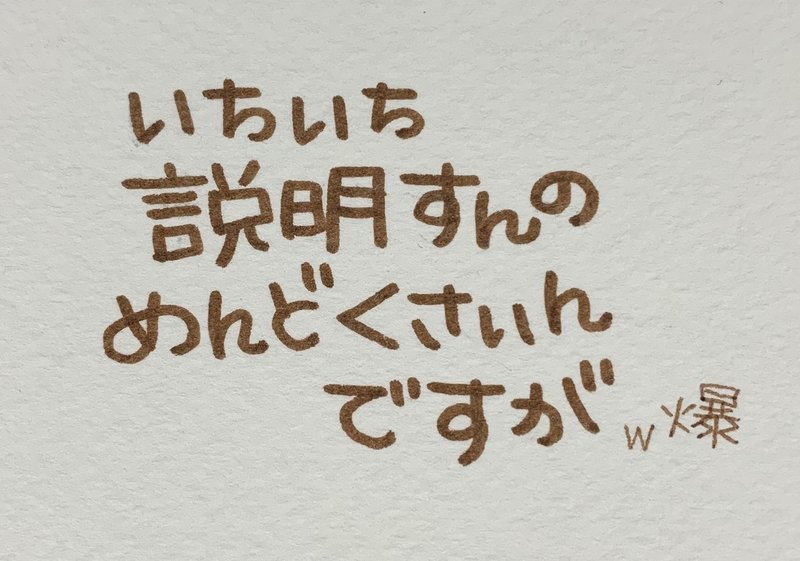 いちいち
説明すんの
めんどくさいん
ですがw爆